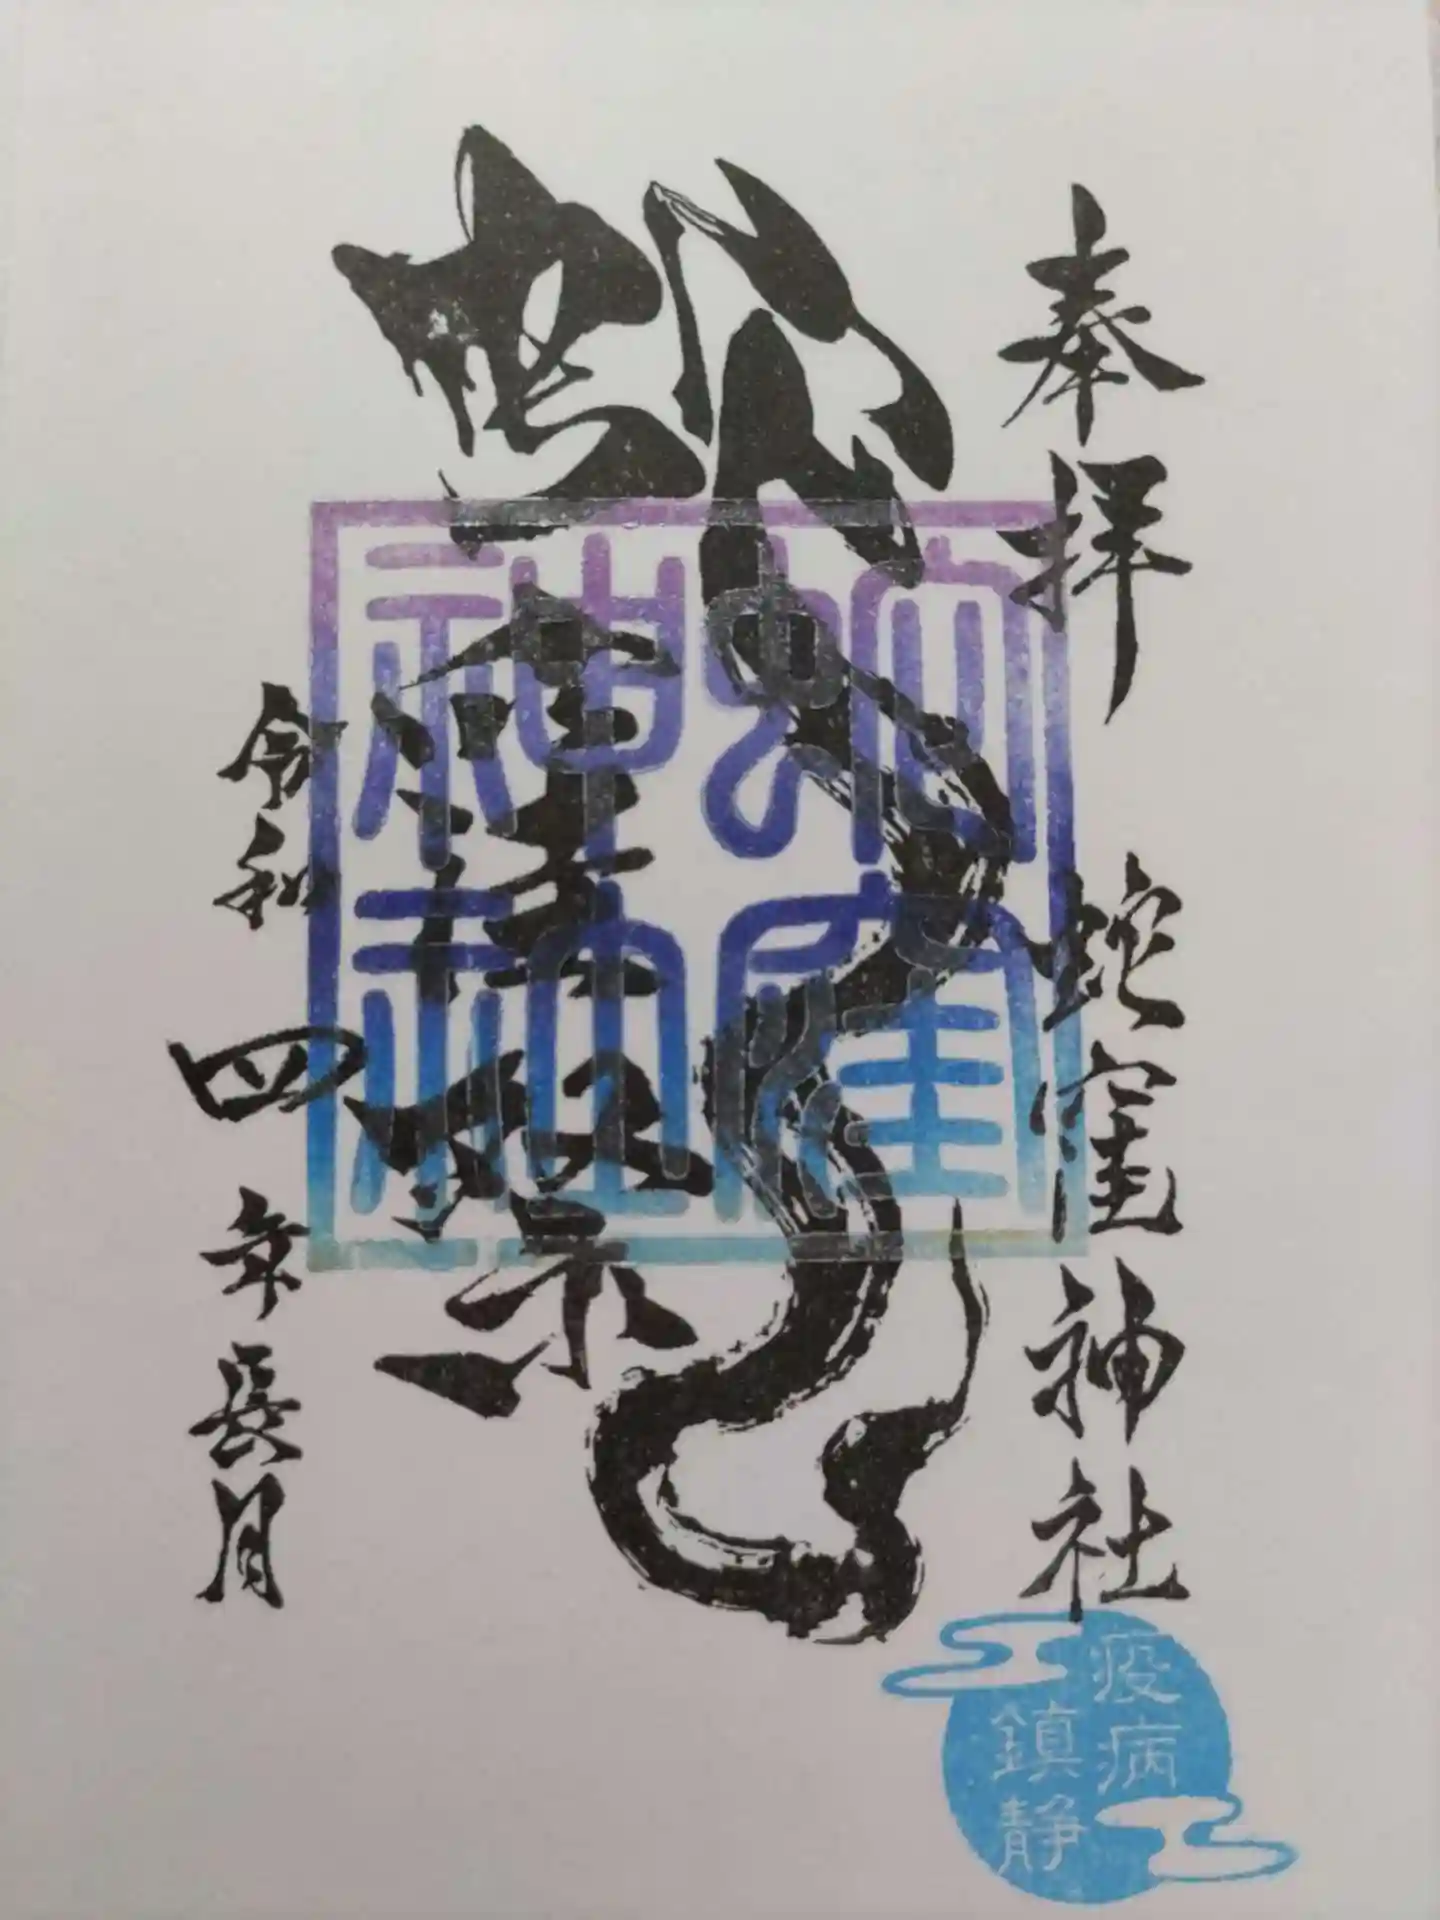 奉拝
蛇窪神社
蛇
祭
蛇窪
神社
令和四年長月
疫病
鎮静